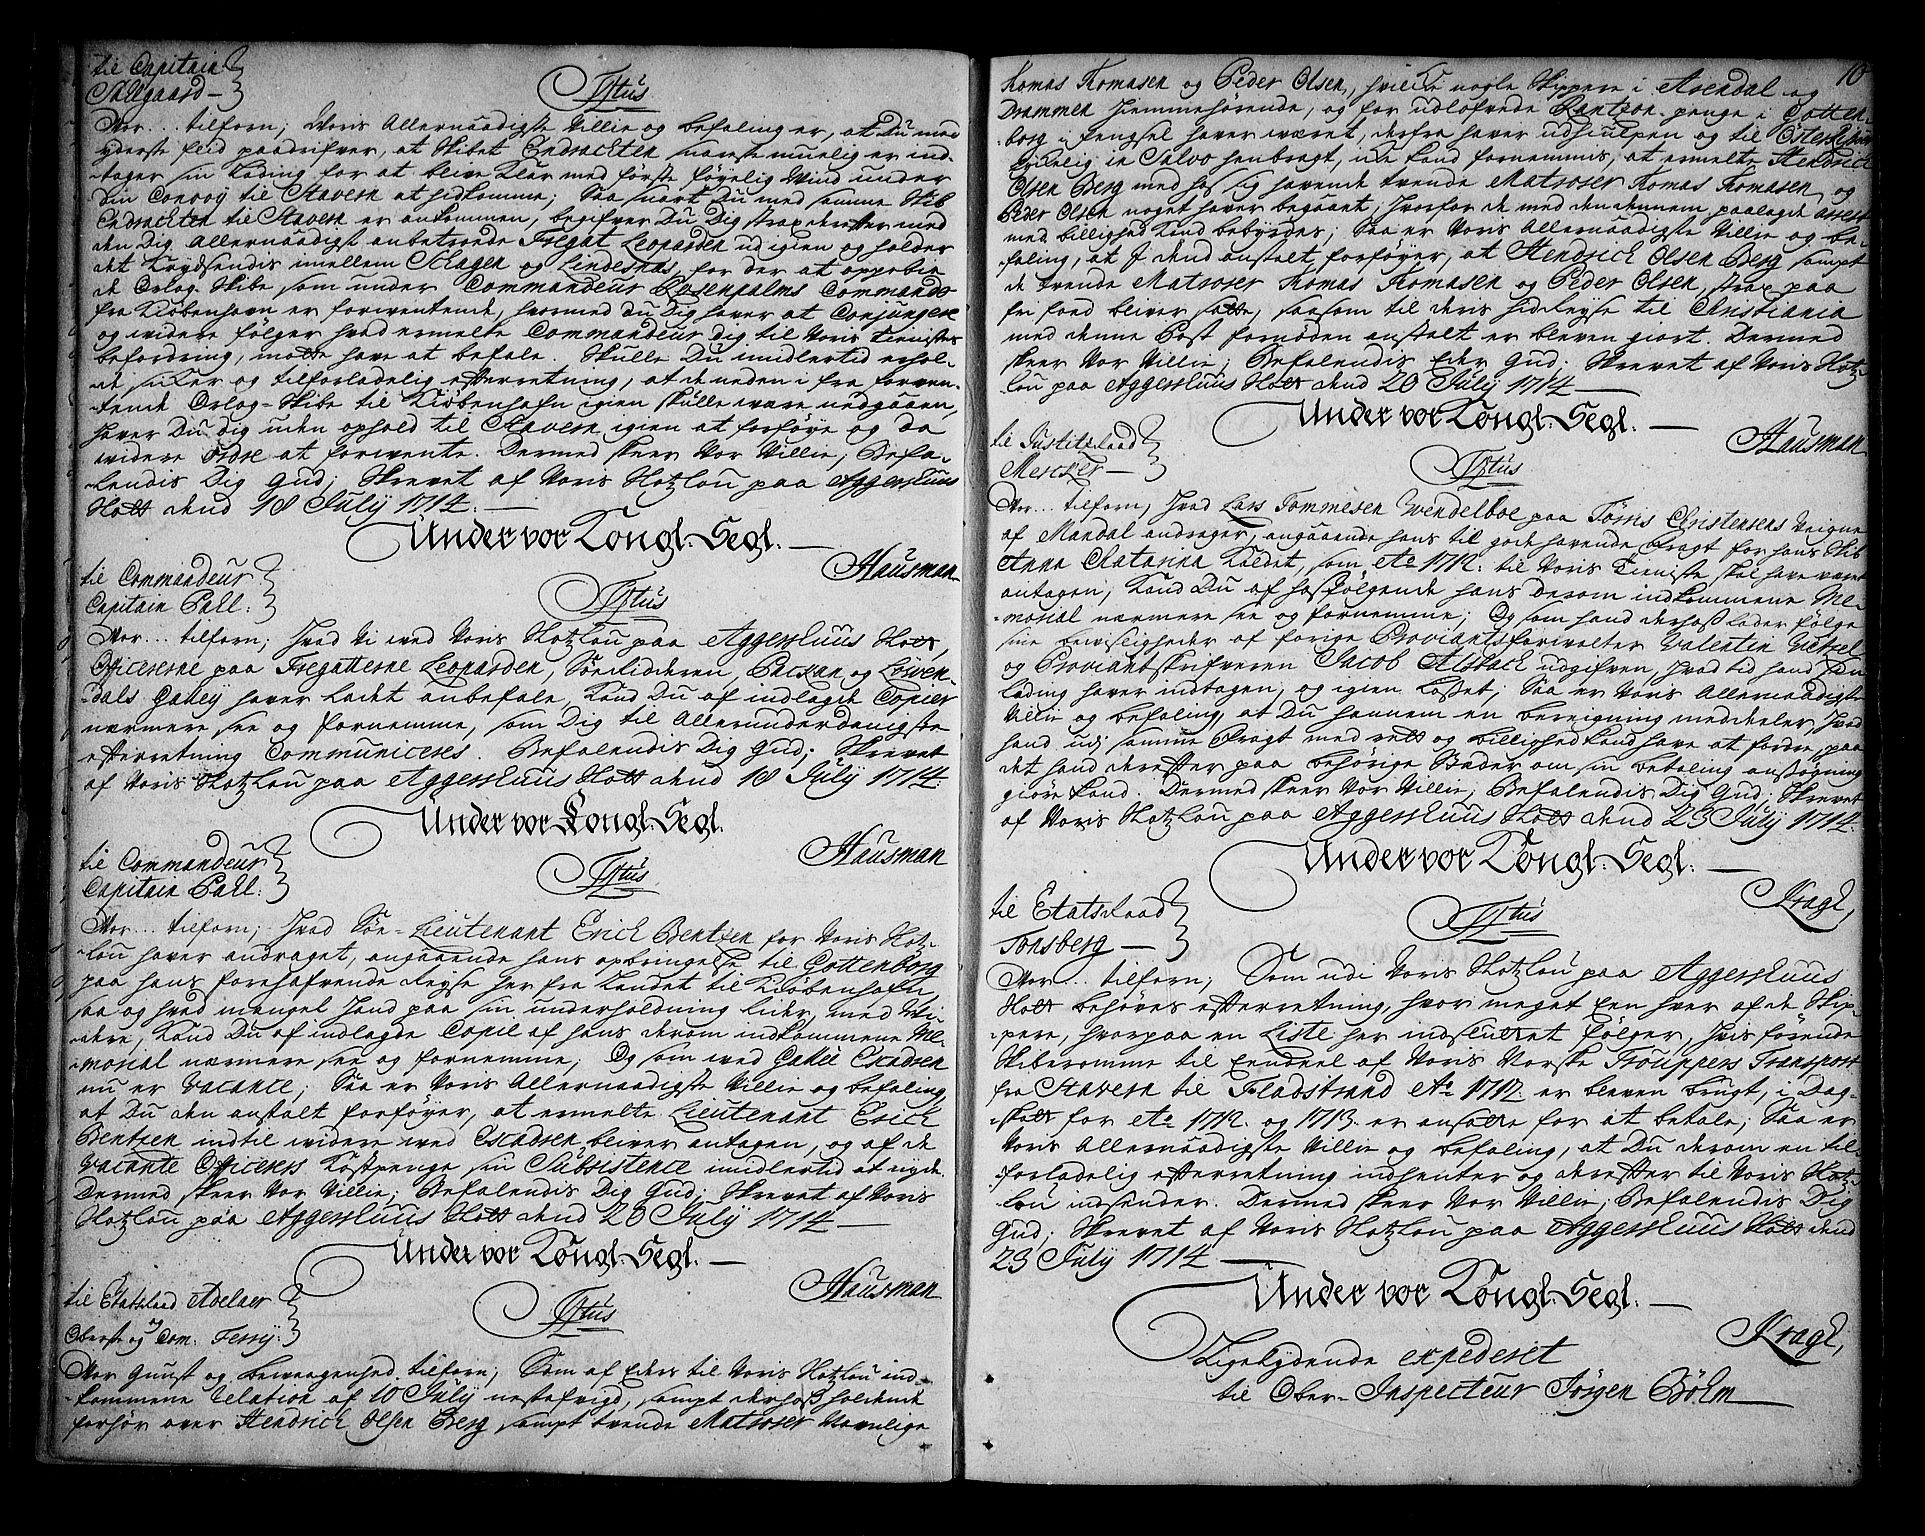 til Capitain
Sallgaard —
Tytus
Vor... tilforn; Woris Allernaadigste Villie og befaling er, at Du med
yderste flid paadrifver, at Skibet Endrachten snarest muelig er ind-
-tager sin Lading for at blive klar med første føyelig Wind under
Din Convoy til Stavern at hidkomme; Saa snart Du med samme Skib
Endrachten til Stavern er ankommen, begifver Du Dig strax derefter med
den Dig Allernaadigst anbetroede Fregat Leoparden ud igien og holder
det Krydsendis imellem Schagen og Lindesnæs, for der at oppebie
de Orlog-Skibe som under Commandeur Rosenpalms Commando
fra Kiøbenhavn er forwentende, hvormed Du Dig haver at Conjungere
og widere følger hvad ermelte Commandeur Dig til Voris Tienistes
befordring, motte have at befale. Skulle Du imidlertid erhol-
-de sikker og tilforladelig efterretning, at de neden i fra forwen-
-tende Orlog-Skibe til Kiøbenhafn igien skulle være nedgaaen,
haver Du Dig uden ophold til Stavern igien at forføye og da
widere Ordre at forwente. Dermed skeer Vor Villie; Befa-
-lendis Dig Gud; Skrevet af Voris Slotzlou paa Aggershuus
Slott dend 18 July 1714. —
Under vor Kongl. Segl. —
Hausman
til Commandeur
Capitain Pall.
Tytus
Vor... tilforn; Hvad Vi ved Voris Slotzlou paa Aggershuus Slott,
Officererne paa Fregatterne Leoparden, Søeridderen, Packan og Løwen-
-dals Galley haver ladet anbefale, Kand Du af indlagde Copier
nærmere see og fornemme, som Dig til Allerunderdanigste
efterretning Communiceres. Befalendis Dig Gud; Skrevet
af Voris Slotzlou paa Aggershuus Slott dend 18 July 1714.
Under vor Kongl. Segl.
Hausman
til Commandeur
Capitain Pall.
Tytus
Vor... tilforn; Hvad Søe-Lieutenant Erich Bentzen for Voris Slotz-
-lou haver andraget, angaaende hans opbringelse til Gottenborg
paa hans forehafvende Reyse her fra Landet til Kiøbenhafn
saa og hvad mangel hand paa sin underholdning lider, med Wi-
-dere, Kand Du af indlagde Copie af hans derom indkommene Me-
-morial nærmere see og fornemme; Og som wed Galei Escadren
nu er Vacante; Saa er Voris Allernaadigste Villie og befaling,
at Du den anstalt forføyer, at ermelte Lieutenant Erich
Bentzen indtil widere wed Escadren bliver antagen, og af de
Vacante Officerers Kostpenge sin Subsistence imidlertid at nyde.
Dermed skeer Vor Villie; Befalendis Dig Gud; Skrevet af Voris
Slotzlou paa Aggershuus Slott dend 20 July 1714 —
Under vor Kongl. Segl. —
Hausman
til Etatsraad Adelaer
Oberste og Com. Ferry.
Tytus
Vor Gunst og bewaagenhed tilforn; Som af Eders til Voris Slotzlou ind-
-kommene Relation af 10 July nestefvigt, sampt derhos holdende
forhør over Hendrich Olsen Berg sampt tvende Matroser Navnlige
10
Tomas Tomasen og Peder Olsen, hvilke nogle Skippere i Arendal og
Drammen hiemmehørende, og for udlofvede Rantzon-penge i Gotten-
-borg i fengsel haver wæret, derfra haver udhiulpen og til Østerriisøer
lykkelig in Salvo henbragt, icke kand fornemmis, at ermelte Hendrich
Olsen Berg med hos sig havende tvende Matroser Tomas Tomasen og
Peder Olsen noget haver begaaet, hvorfor de med den dennem paalagde arrest
med billighed kand bebyrdes; Saa er Voris Allernaadigste Villie og be-
-faling, at I dend anstalt forføyer, at Hendrich Olsen Berg sampt
de tvende Matroser Tomas Tomasen og Peder Olsen, strax paa
fri foed bliver satte, saasom til deris hidreyse til Christiania
med denne Post fornøden anstalt er bleven giort. Dermed
skeer Vor Villie; Befalendis Eder Gud; Skrevet af Voris Slotz-
lou paa Aggershuus Slott dend 20 July 1714 —
Under vor Kongl. Segl. —
Hausman
til Justitsraad
Mercker —
Tytus
Vor... tilforn; Hvad Lars Tommesen Wendelboe paa Tørris Christensens Vegne
af Mandal andrager, angaaende hans til gode havende fragt for hans Skib
Anna Chatarina kaldet, som Ao 1712. til Voris Tieniste skal have været
antagen, Kand Du af hosfølgende hans derom indkommene Me-
-morial nærmere see og fornemme; Og som hand derhos lader følge
sine bewisligheder af forige Proviantforwalter Valentin Wetzel
og Proviantskrifveren Jacob Alsback udgifven, hvad tid hand sin
lading haver indtagen, og igien losset; Saa er Voris Allernaadigste
Villie og befaling, at Du hannem en beregning meddeler, hvad
hand udj samme fragt med rett og billighed kand have at fordre, paa
det hand derefter paa behørige Stæder om sin betaling ansøgning
giøre kand. Dermed skeer Vor Villie; Befalendis Dig Gud; Skrevet
af Voris Slotzlou paa Aggershuus Slott dend 23 July 1714.
Under vor Kongl. Segl. —
Kragh,
til Etatsraad
Tonsberg —
Tytus
Vor... tilforn; Som udi Voris Slotzlou paa Aggershuus
Slott behøves efterretning, hvor meget een hver af de Skip-
-pere, hvorpaa en Liste her indsluttet følger, hvis førende
Skiberomme til Eendeel af Voris Norske Trouppers Transport
fra Stavern til Fladstrand Ao 1712. er bleven brugt, i Dag-
-skatt for Ao 1712. og 1713. er ansatte for at betale; Saa er
Voris Allernaadigste Villie og befaling, at Du derom en til-
-forladelig efterretning indhenter og derefter til Voris Slotz-
lou indsender. Dermed skeer Vor Villie; Befalendis Dig
Gud; Skrevet af Voris Slotzlou paa Aggershuus Slott dend
23 July 1714 —
Under vor Kongl. Segl. —
Kragh,
Ligelydende expederet
til Ober-Inspecteur Jørgen Bøhm